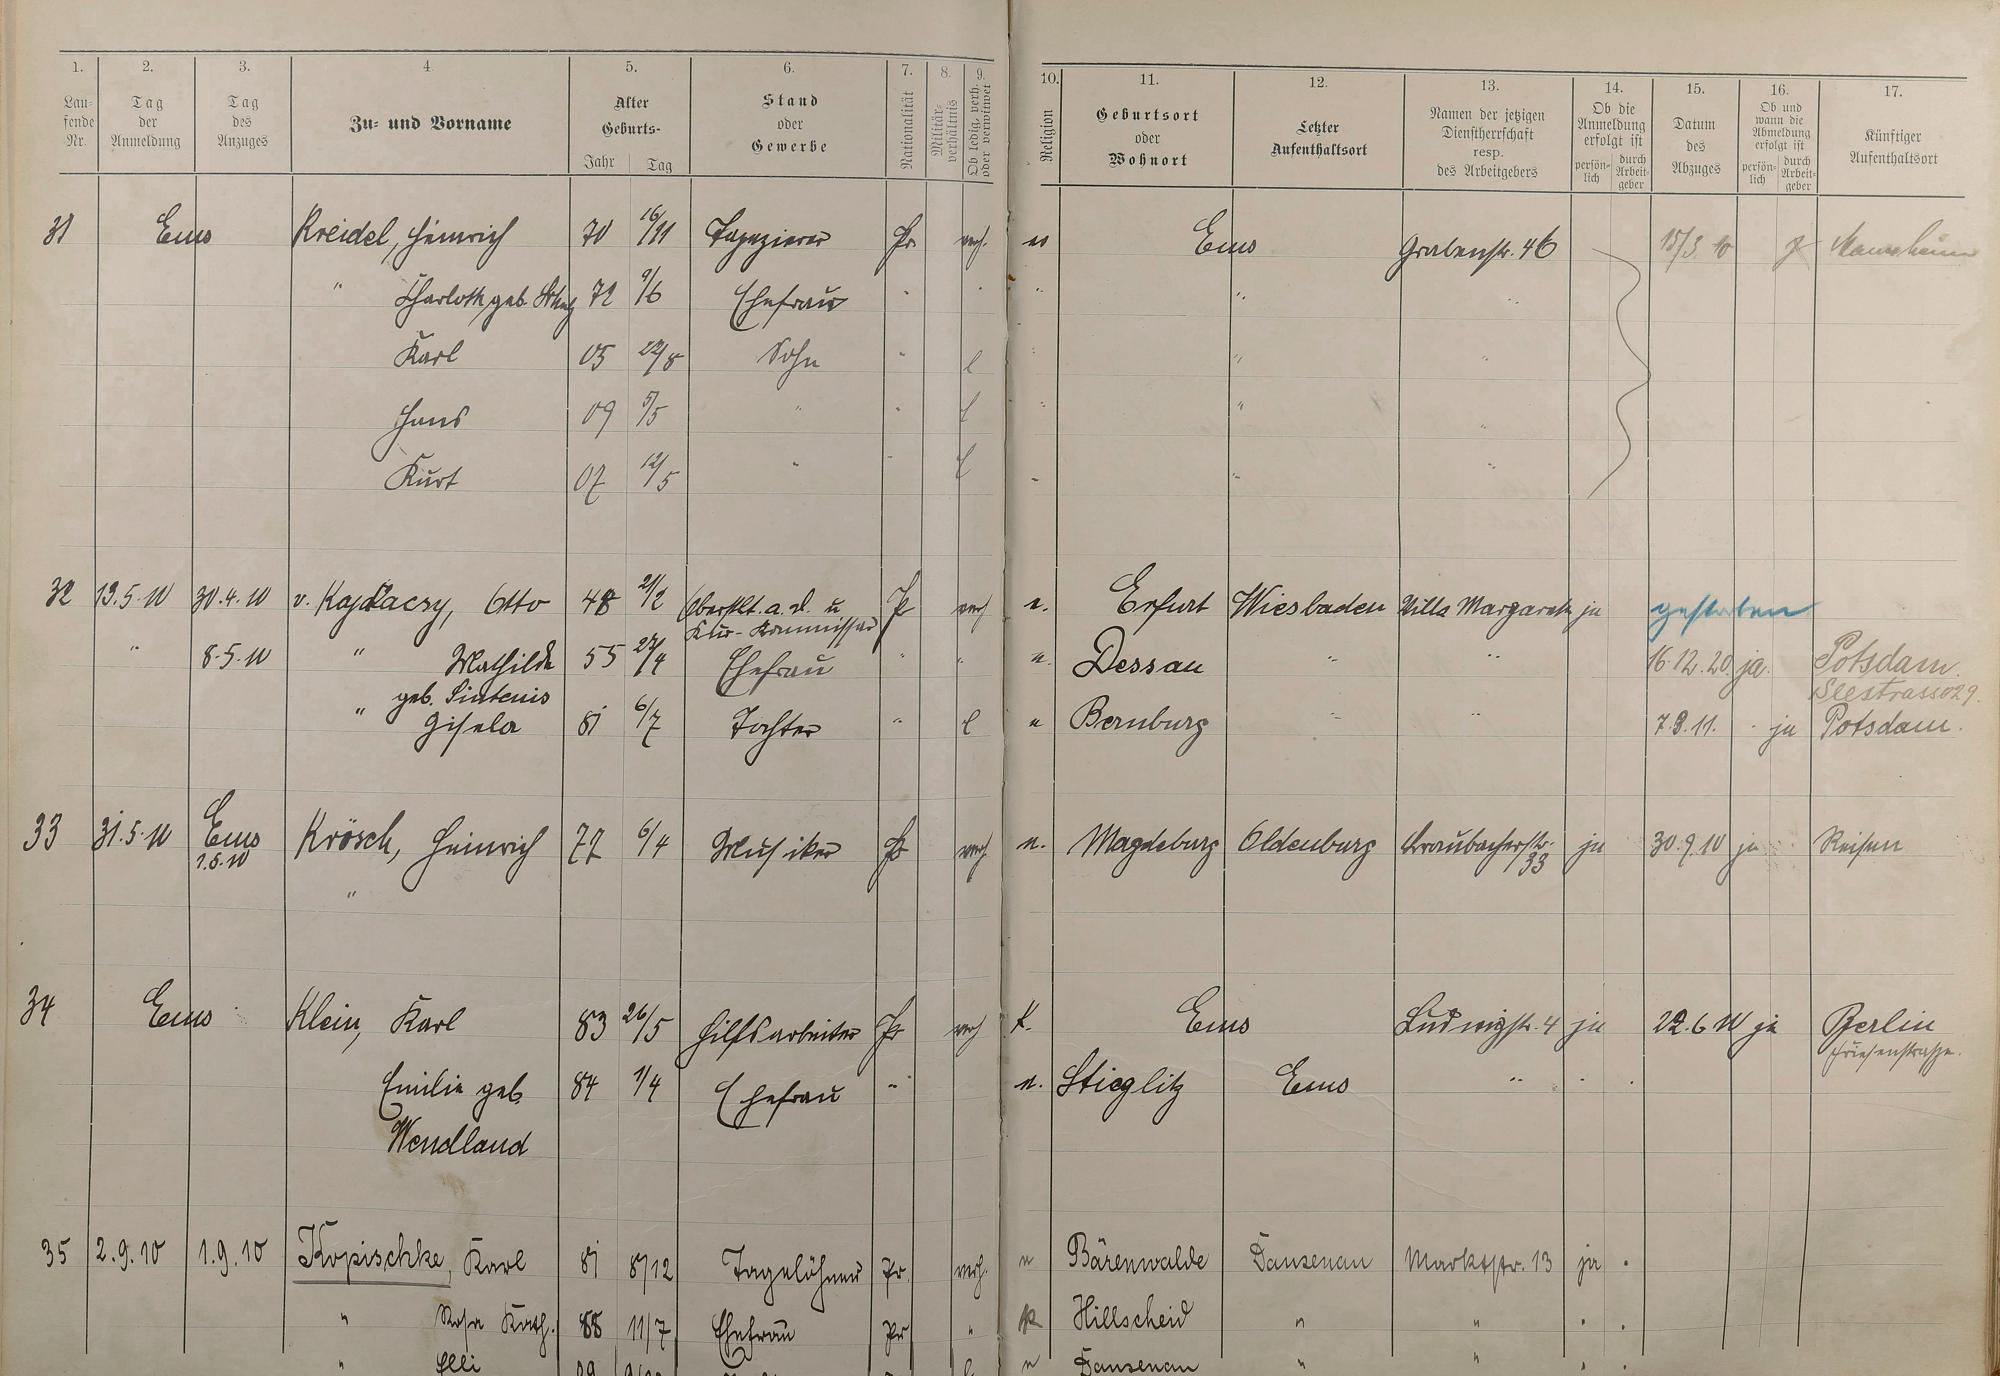 1. 2. 3. 4 5. 6. 7. 8. 9. 10. 11. 12. 13. 14. 15. 16. 17.
Lau-
fende
Nr.
Tag
der
Anmeldung
Tag
des
Anzuges
Zu- und Vorname
Alter
Geburts-
Jahr Tag
Stand
oder
Gewerbe
Nationalität
Militär-
verhältnis
Ob ledig, verh.
oder verwitwet
Religion
Geburtsort
oder
Wohnort
Letzter
Aufenthaltsort
Namen der jetzigen
Dienstherrschaft
resp.
des Arbeitgebers
Ob die
Anmeldung
erfolgt ist
persön-
lich
durch
Arbeit-
geber
Datum
des
Abzuges
Ob und
wann die
Abmeldung
erfolgt ist
persön-
lich
durch
Arbeit-
geber
Künftiger
Aufenthaltsort
31 Ems Kreidel, Heinrich 70 16/11 Tapezierer Pr verh. ev Ems Grabenstr. 46 15/3. 10 Mannheim
" Charlotte, geb. 72 9/6 Ehefrau " " " " "
Karl 05 22/8 Sohn " l " "
Hans 09 5/5 " " l " " "
Kurt 07 12/5 " " l " " "
32 13.5.10 30.4.10 v. Kajdacsy, Otto 48 21/2 Oberstlt. a. D. u Pr verh e. Erfurt Wiesbaden Villa Margareth ja gestorben
Kur-Kommissar
" 8.5.10 " Mathilde 55 27/4 Ehefrau " " e. Dessau " " 16.12.20 ja. Potsdam.
geb. Sintenis Seestrasse 29.
" Gisela 81 6/7 Tochter " l e Bernburg " " 7.3.11. ja Potsdam.
33 31.5.10 Ems Krösch, Heinrich 77 6/4 Musiker Pr verh. e. Magdeburg Oldenburg Braubacherstr. ja 30.9.10 ja Reisen
1.5.10 33
"
34 Ems Klein, Karl 83 26/5 Hilfsarbeiter Pr verh K. Ems Ludwigstr. 4 ja 22.6.10 ja Berlin
Friesenstraße.
Emilie geb. 84 1/4 Ehefrau " e. Stieglitz Ems "
Wendland
35 2.9.10 1.9.10 Kopischke, Karl 81 8/12 Tagelöhner Pr. verh. e Bärenwalde Dausenau Marktstr. 13 ja
" Rosa Kath. 88 11/7 Ehefrau Pr " k Hillscheid " "
" Elli e Dausenau " "